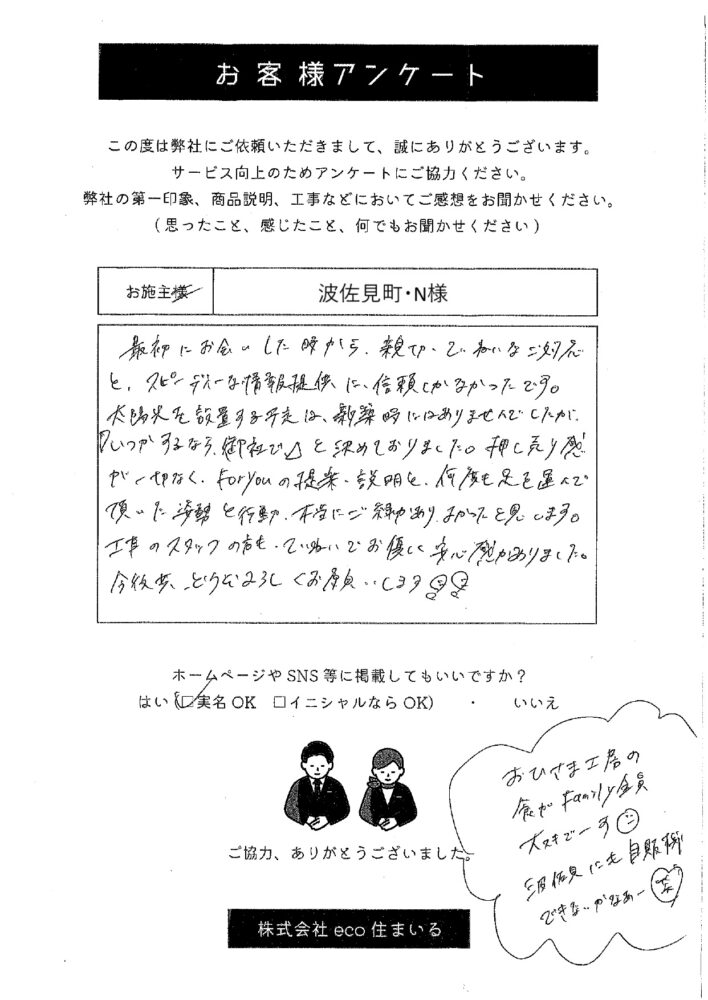 お客様アンケート
この度は弊社にご依頼いただきまして、誠にありがとうございます。
サービス向上のためアンケートにご協力ください。
弊社の第一印象、商品説明、工事などにおいてご感想をお聞かせください。
(思ったこと、感じたこと、何でもお聞かせください)
お施主様 波佐見町・N様
最初にお会いした時から、親切・ていねいなご対応
と、スピーディーな情報提供に、信頼しかなかったです。
太陽光を設置する予定は、新築時にはありませんでしたが、
「いつかするなら、御社で」と決めておりました。押し売り感
が一切なく、For youの提案・説明と、何度も足を運んで
頂いた姿勢と行動、本当にご縁があり、よかったと思います。
工事のスタッフの方も、ていねいでお優しく安心感がありました。
今後共、どうぞよろしくお願いします
ホームページやSNS等に掲載してもいいですか?
はい(□実名OK □イニシャルならOK) ・ いいえ
ご協力、ありがとうございました。
おひさま工房の
食が Family全員
大スキでーす
波佐見にも自販機
できないかなあー
株式会社eco住まいる